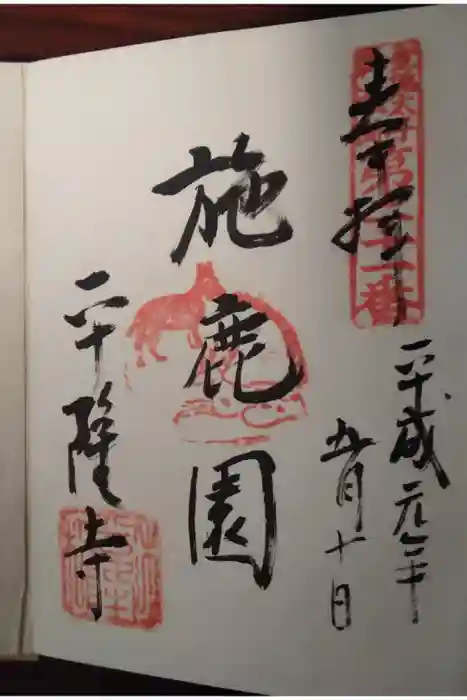 奉拝
第二十一番
平成元年
五月十日
施鹿園
平隆寺